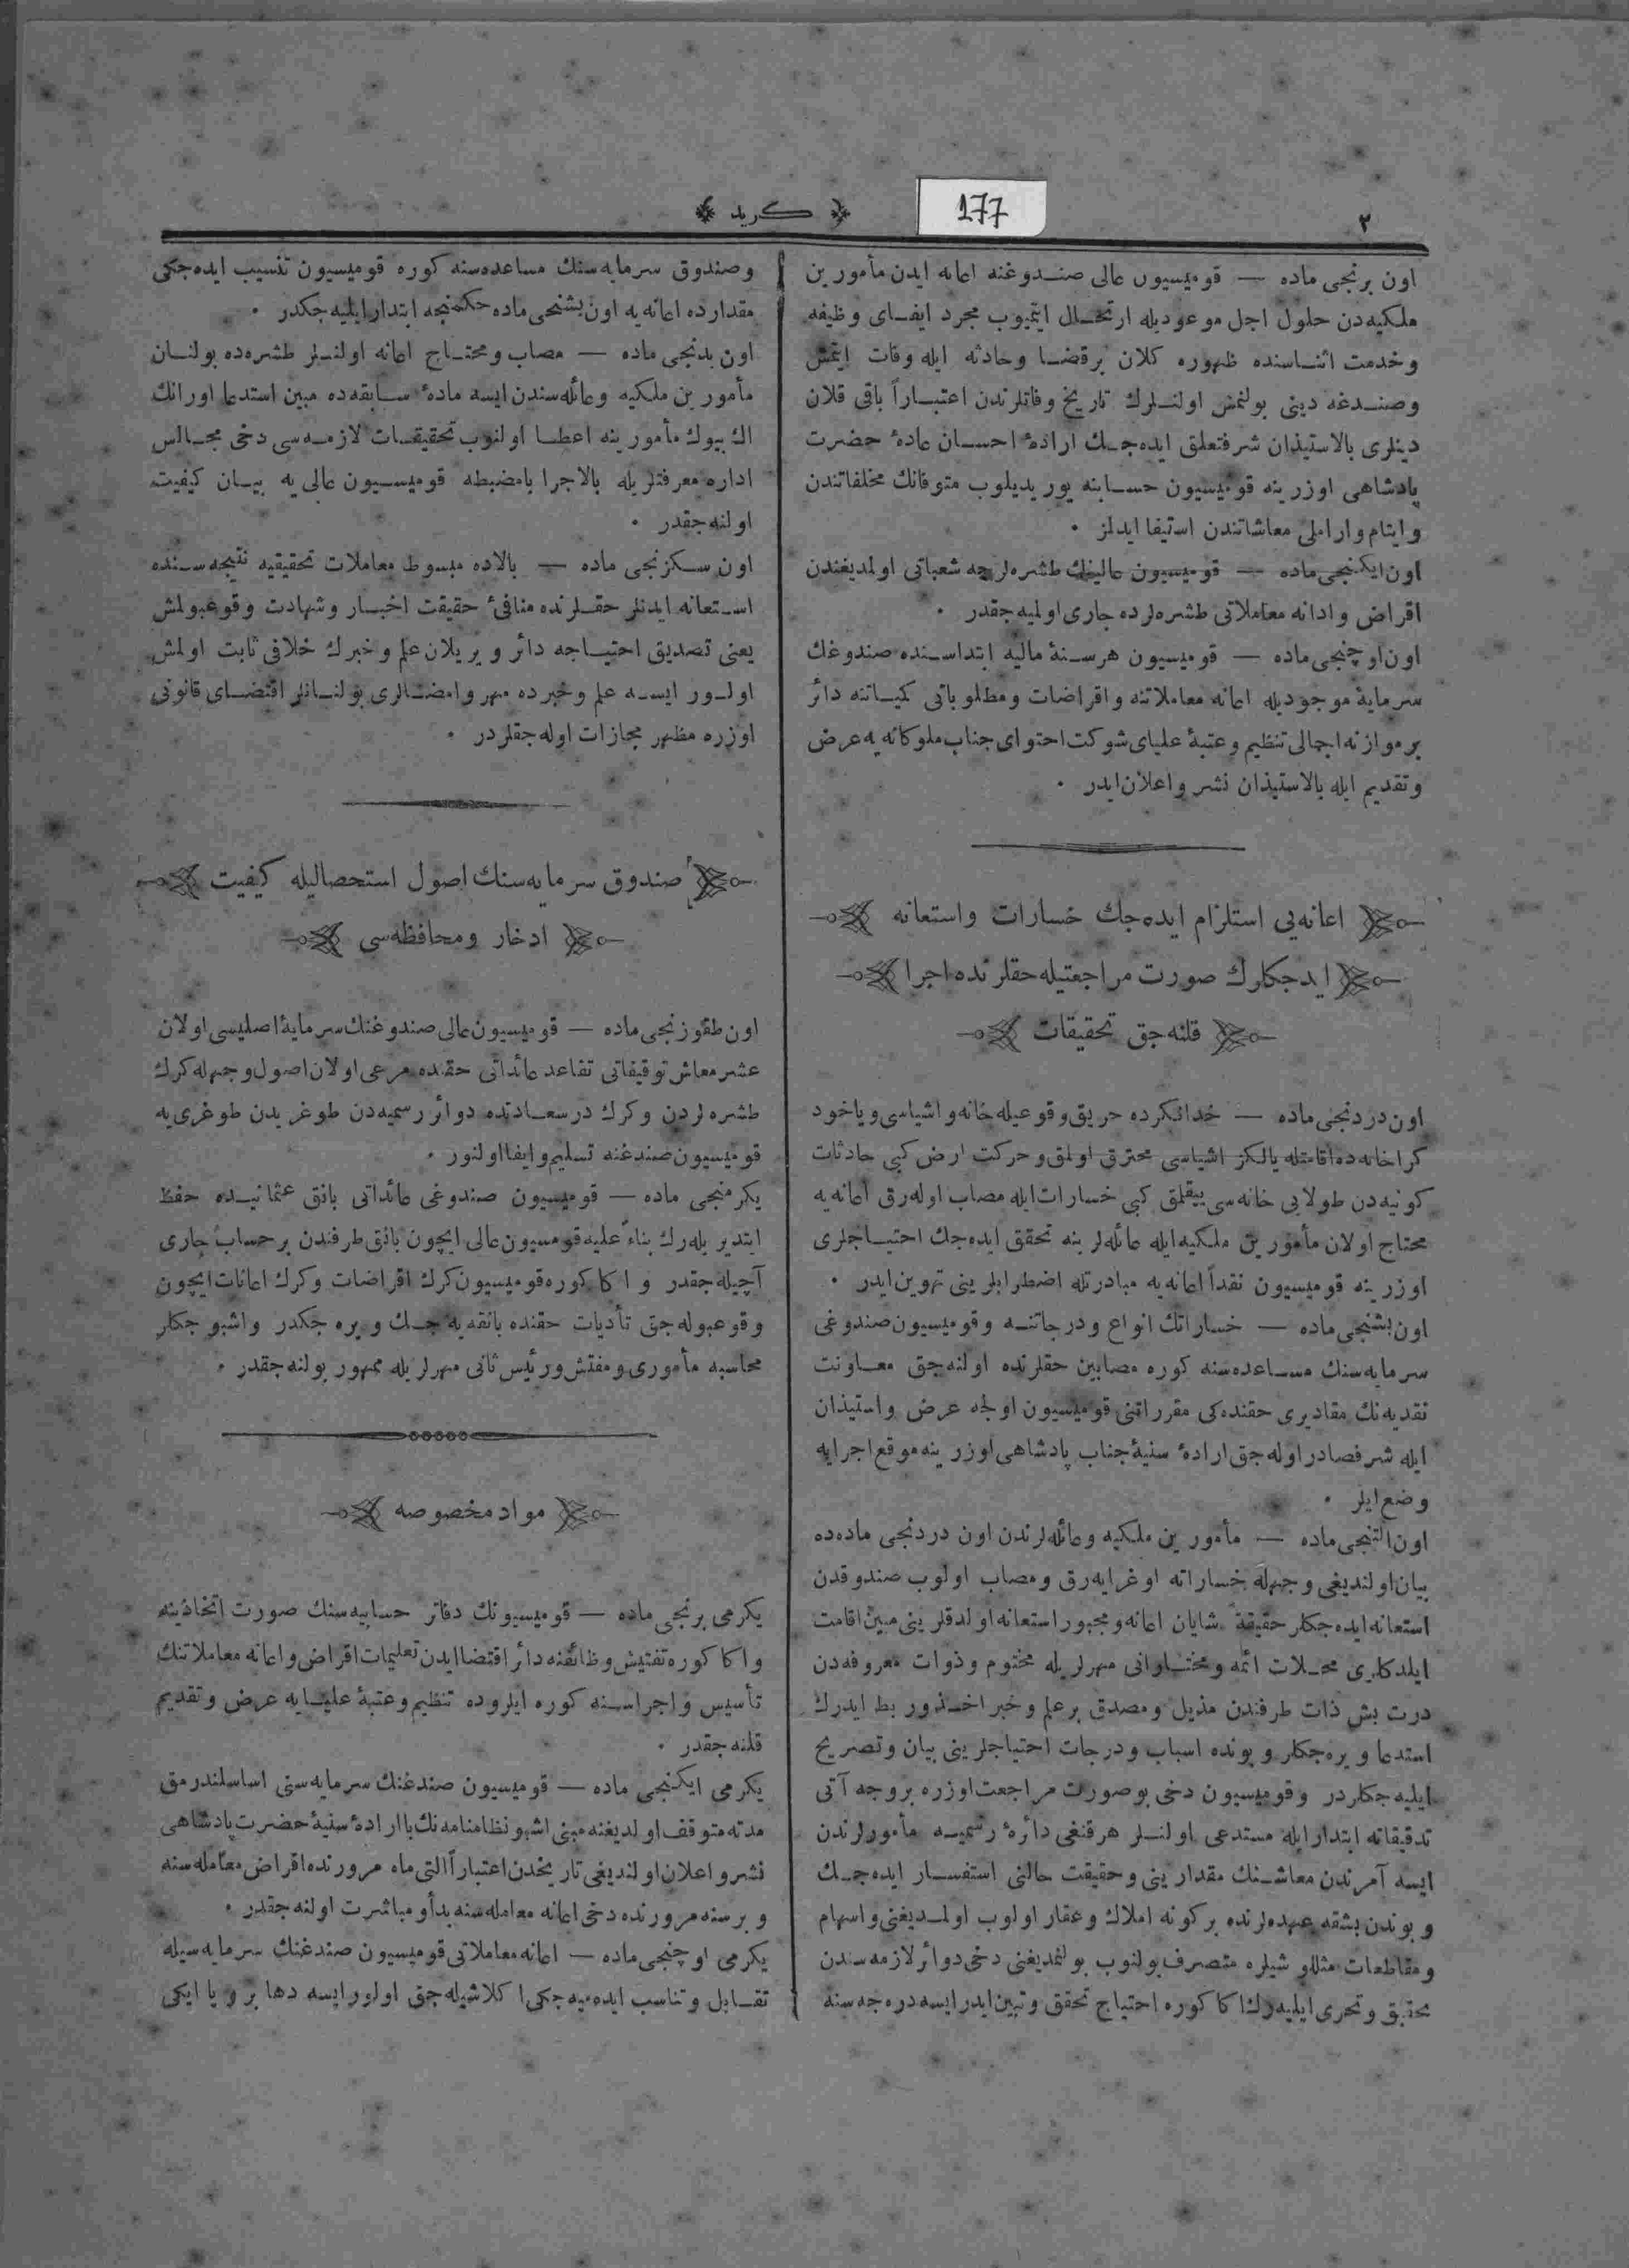 ٢
177
كريد
اون برنجی ماده — قومیسیون عالی صندوغنه اعانه ایدن مأمورین
ملکیه‌دن حلول اجل موعودیله ارتحال ایتمیوب مجرد ایفای وظیفه
وخدمت اثناسنده ظهوره کلان برقضا وحادثه ایله وفات ایتمش
وصندغه دینی بولنمش اولنلرك تاریخ وفاتلرندن اعتباراً باقی قلان
دینلری بالاستیذان شرفتعلق ایده‌جك ارادۀ احسان عادۀ حضرت
پادشاهی اوزرینه قومیسیون حسابنه یوریدیلوب متوفانك مخلفاتندن
وایتام وارامل معاشاتندن استیفا ایدلمز ٠
اون‌ایکنجی‌ماده — قومیسیون عالینك طشره‌لرجه شعباتی اولمدیغندن
اقراض وادانه معاملاتی طشره‌لرده جاری اولمیه‌جقدر ٠
اون‌اوچنجی‌ماده — قومیسیون هرسنۀ مالیه ابتداسنده صندوغك
سرمایۀ موجودیله اعانه معاملاتنه واقراضات ومطلوباتی کمیاتنه دائر
برموازنه‌اجمالی تنظیم وعتبۀ علیای شوکت‌احتوای جناب‌ملوکانه‌یه‌عرض
وتقدیم ایله بالاستیذان نشر واعلان‌ایدر ٠
اعانه‌یی استلزام ایده‌جك خسارات واستعانه
ایدجکلرك صورت مراجعتیله حقلرنده اجرا
قلنه‌جق تحقیقات
اون‌دردنجی‌ماده — خدانکرده حریق‌وقوعیله خانه‌واشیاسی‌ویاخود
کراخانه‌ده‌اقامتله یالکز اشیاسی محترق اولمق‌وحرکت ارض کبی حادثات
کونیه‌دن طولایی خانه‌سی ییقلمق کبی خسارات‌ایله مصاب اوله‌رق اعانه‌یه
محتاج اولان مأمورین ملکیه‌ایله عائله‌لرینه تحقق ایده‌جك احتیاجلری
اوزرینه قومیسیون نقداً اعانه‌یه مبادرتله اضطرابلرینی تهوین‌ایدر ٠
اون‌بشنجی‌ماده — خساراتك انواع ودرجاتنه وقومیسیون‌صندوغی
سرمایه‌سنك مساعده‌سنه کوره مصابین حقلرنده اولنه‌جق معاونت
نقدیه‌نك مقادیری حقنده‌کی مقرراتنی قومیسیون اولجه عرض واستیذان
ایله شرفصادر اوله‌جق‌ارادۀ سنیۀ جناب پادشاهی‌اوزرینه‌موقع‌اجرایه
وضع‌ایلر ٠
اون‌التنجی‌ماده — مأمورین ملکیه وعائله‌لرندن اون دردنجی ماده‌ده
بیان‌اولندیغی وجهله خساراته اوغرایه‌رق ومصاب اولوب صندوقدن
استعانه‌ایده‌جکلر حقیقةً شایان اعانه‌ومجبوراستعانه‌اولدقلرینی‌مبین‌اقامت
ایلدکلری محلات ائمه ومختارانی مهرلریله مختوم وذوات معروفه‌دن
درت بش ذات طرفندن مذیل ومصدق برعلم وخبراخذوربط ایدرك
استدعا ویره‌جکلر وبونده اسباب ودرجات احتیاجلرینی بیان وتصریح
ایلیه‌جکلردر وقومیسیون دخی بوصورت مراجعت‌اوزره بروجه آتی
تدقیقاته ابتدارایله مستدعی اولنلر هرقنغی دائرۀ رسمیه مأمورلرندن
ایسه آمرندن معاشنك مقدارینی وحقیقت حالنی استفسار ایده‌جك
وبوندن‌بشقه عهده‌لرنده برکونه املاك وعقار اولوب اولمدیغنی‌واسهام
ومقاطعات مثللو شیلره متصرف‌بولنوب بولنمدیغنی دخی‌دوائرلازمه‌سندن
تحقیق وتحری‌ایلیه‌رك‌اکا کوره احتیاج تحقق وتبین‌ایدرایسه‌درجه‌سنه
وصندوق سرمایه‌سنك مساعده‌سنه کوره قومیسیون تنسیب ایده‌جکی
مقدارده اعانه‌یه اون‌بشنجی‌ماده حکمنجه ابتدارایلیه‌جکدر ٠
اون یدنجی ماده — مصاب ومحتاج اعانه اولنلر طشره‌ده بولنان
مأمورین ملکیه وعائله‌سندن ایسه مادۀ سابقه‌ده مبین استدعا اورانك
اك بیوك مأمورینه اعطا اولنوب تحقیقات لازمه‌سی دخی مجالس
اداره معرفتلریله بالاجرا بامضبطه قومیسیون عالی‌یه بیان کیفیت
اولنه‌جقدر ٠
اون سکزنجی ماده — بالاده مبسوط معاملات تحقیقیه نتیجه‌سنده
استعانه ایدنلر حقلرنده منافیٔ حقیقت اخبار وشهادت وقوعبولمش
یعنی تصدیق احتیاجه دائر ویریلان علم وخبرك خلافی ثابت اولمش
اولور ایسه علم وخبرده مهر وامضالری بولنانلر اقتضای قانونی
اوزره مظهر مجازات اوله‌جقلردر ٠
صندوق سرمایه‌سنك اصول استحصالیله کیفیت
ادخار ومحافظه‌سی
اون‌طقوزنجی‌ماده — قومیسیون‌عالی‌صندوغنك‌سرمایۀ‌اصلیسی‌اولان
عشرمعاش‌توقیفاتی تقاعد عائداتی حقنده مرعی‌اولان‌اصول‌وجهله‌کرك
طشره‌لردن وکرك درسعادتده دوائررسمیه‌دن طوغریدن طوغری‌یه
قومیسیون‌صندغنه تسلیم‌وایفااولنور ٠
یکرمنجی ماده — قومیسیون صندوغی عائداتی بانق عثمانیده حفظ
ایتدیریله‌رك بناءً علیه‌قومسیون‌عالی ایچون بانق‌طرفندن برحساب‌جاری
آچیله‌جقدر واکاکوره‌قومیسیون‌کرك اقراضات وکرك اعانات‌ایچون
وقوعبوله‌جق تأدیات حقنده بانقه‌یه چك ویره‌جکدر واشبو چکلر
محاسبه مأموری‌ومفتش‌ورئیس‌ثانی مهرلریله ممهور بولنه‌جقدر ٠
موادمخصوصه
یکرمی برنجی ماده — قومیسیونك دفاتر حسابیه‌سنك صورت اتخاذینه
واکا کوره‌تفتیش‌وظائفنه دائراقتضاایدن‌تعلیمات‌اقراض‌واعانه معاملاتنك
تأسیس واجراسنه کوره ایلروده تنظیم‌وعتبۀ علیایه عرض وتقدیم
قلنه‌جقدر ٠
یکرمی ایکنجی ماده — قومیسیون صندغنك سرمایه‌سنی اساسلندرمق
مدته‌متوقف‌اولدیغنه‌مبنی‌اشبونظامنامه‌نك‌باارادۀ‌سنیۀ‌حضرت‌پادشاهی
نشرواعلان‌اولندیغی‌تاریخدن‌اعتباراًالتی‌ماه مرورنده‌اقراض‌معامله‌سنه
وبرسنه‌مرورنده دخی‌اعانه معامله‌سنه‌بدأومباشرت اولنه‌جقدر ٠
یکرمی اوچنجی‌ماده — اعانه‌معاملاتی‌قومیسیون صندغنك سرمایه‌سیله
تقابل وتناسب ایده‌میه‌جکی‌اکلاشیله‌جق اولورایسه دها بر ویا ایکی